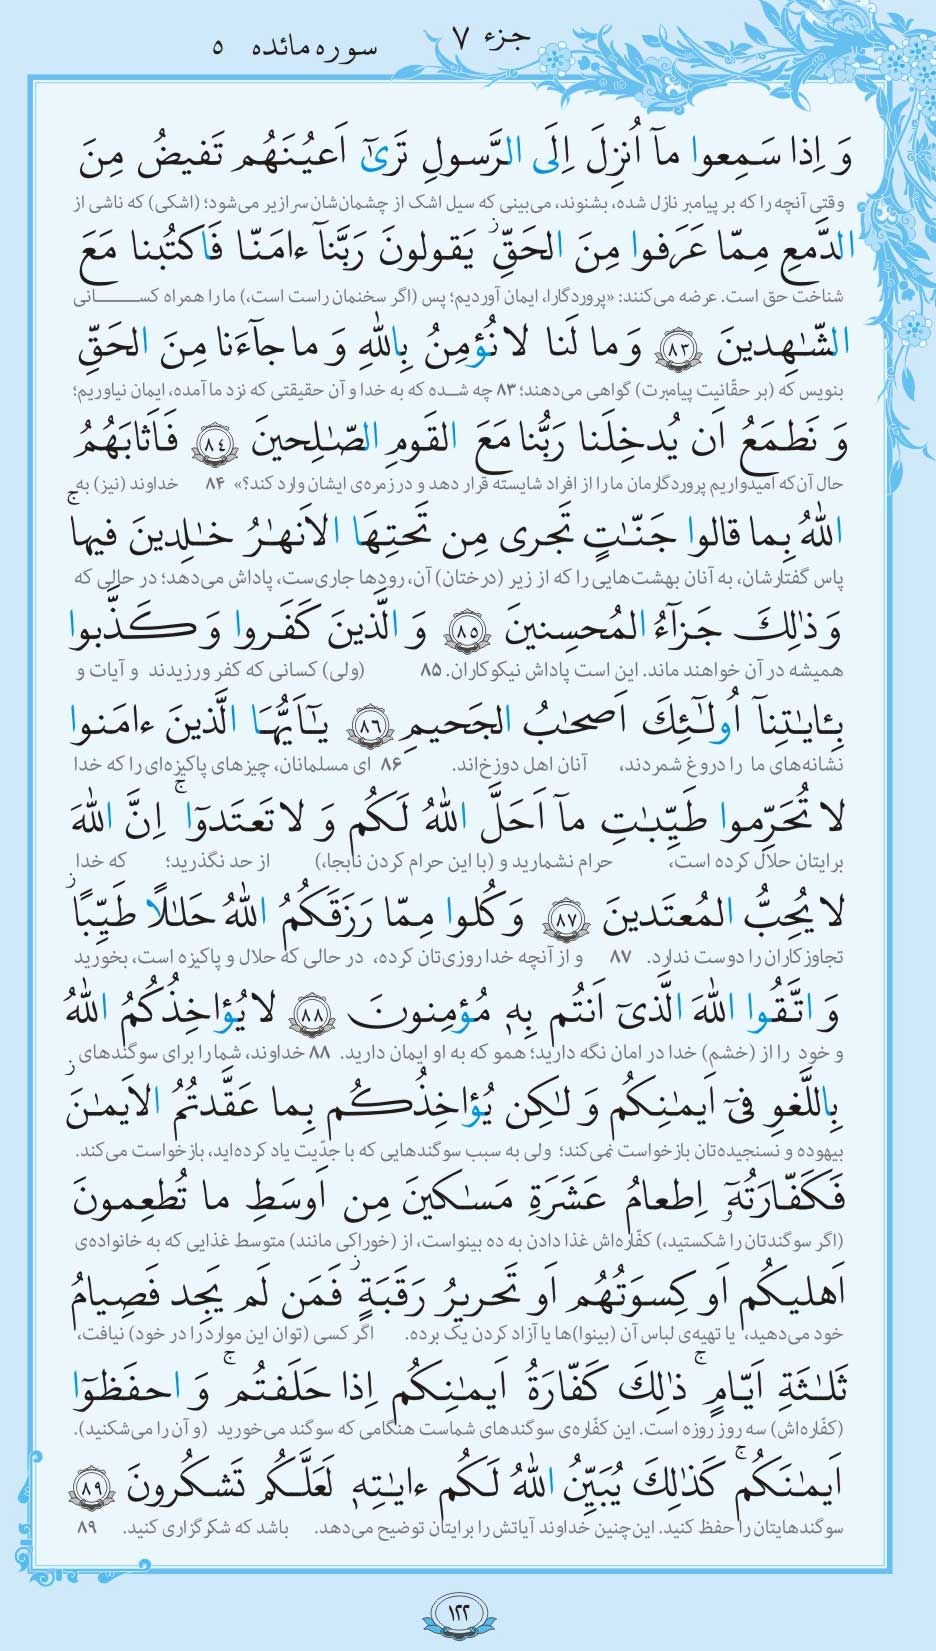 جزء ۷
سوره مائده ۵
وَ اِذا سَمِعوا ماۤ اُنزِلَ اِلَی الرَّسولِ تَرىٰۤ اَعیُنَهُم تَفیضُ مِنَ
وقتی آنچه را که بر پیامبر نازل شده، بشنوند، می‌بینی که سیل اشک از چشمان‌شان سرازیر می‌شود؛ (اشکی) که ناشی از
الدَّمعِ مِمّا عَرَفوا مِنَ الحَقِّ ۖ یَقولونَ رَبَّناۤ ءامَنّا فَاكتُبنا مَعَ
شناخت حق است. عرضه می‌کنند: «پروردگارا، ایمان آوردیم؛ پس (اگر سخنمان راست است،) ما را همراه کسانی
الشّٰهِدینَ ﴿۸۳﴾ وَ ما لَنا لا نُؤمِنُ بِاللهِ وَ ما جاۤءَنا مِنَ الحَقِّ
بنویس که (بر حقّانیت پیامبرت) گواهی می‌دهند؛ ۸۳ چه شده که به خدا و آن حقیقتی که نزد ما آمده، ایمان نیاوریم؛
وَ نَطمَعُ اَن یُدخِلَنا رَبُّنا مَعَ القَومِ الصّٰلِحینَ ﴿۸٤﴾ فَاَثابَهُمُ
حال آن‌که امیدواریم پروردگارمان ما را از افراد شایسته قرار دهد و در زمره‌ی ایشان وارد کند؟» ۸۴ خداوند (نیز) به
اللهُ بِما قالوا جَنّٰتٍ تَجری مِن تَحتِهَا الاَنهٰرُ خٰلِدینَ فیها ۚ
پاس گفتارشان، به آنان بهشت‌هایی را که از زیر (درختان) آن، رودها جاری‌ست، پاداش می‌دهد؛ در حالی که
وَ ذٰلِكَ جَزاۤءُ المُحسِنینَ ﴿۸۵﴾ وَ الَّذینَ كَفَروا وَ كَذَّبوا
همیشه در آن خواهند ماند. این است پاداش نیکوکاران. ۸۵ (ولی) کسانی که کفر ورزیدند و آیات و
بِـٔایٰتِناۤ اُولٰۤئِكَ اَصحٰبُ الجَحیمِ ﴿۸۶﴾ یٰۤاَیُّهَا الَّذینَ ءامَنوا
نشانه‌های ما را دروغ شمردند، آنان اهل دوزخ‌اند. ۸۶ ای مسلمانان، چیزهای پاکیزه‌ای را که خدا
لا تُحَرِّموا طَیِّبٰتِ ماۤ اَحَلَّ اللهُ لَكُم وَ لا تَعتَدوۤا ۚ اِنَّ اللهَ
برایتان حلال کرده است، حرام نشمارید و (با این حرام کردن نابجا،) از حد نگذرید؛ که خدا
لا یُحِبُّ المُعتَدینَ ﴿۸۷﴾ وَ كُلوا مِمّا رَزَقَكُمُ اللهُ حَلٰلًا طَیِّبًا ۚ
تجاوزکاران را دوست ندارد. ۸۷ و از آنچه خدا روزی‌تان کرده، در حالی که حلال و پاکیزه است، بخورید
وَ اتَّقُوا اللهَ الَّذیۤ اَنتُم بِهٖ مُؤمِنونَ ﴿۸۸﴾ لا یُؤاخِذُكُمُ اللهُ
و خود را از (خشم) خدا در امان نگه دارید؛ همو که به او ایمان دارید. ۸۸ خداوند، شما را برای سوگندهای
بِاللَّغوِ فیۤ اَیمٰنِكُم وَ لٰكِن یُؤاخِذُكُم بِما عَقَّدتُمُ الاَیمٰنَ ۖ
بیهوده و نسنجیده‌تان بازخواست نمی‌کند؛ ولی به سبب سوگندهایی که با جدّیت یاد کرده‌اید، بازخواست می‌کند.
فَكَفّارَتُهٗۤ اِطعامُ عَشَرَةِ مَسٰكینَ مِن اَوسَطِ ما تُطعِمونَ
(اگر سوگندتان را شکستید،) کفّاره‌اش غذا دادن به ده بینواست، از (خوراکی مانند) متوسط غذایی که به خانواده‌ی
اَهلیكُم اَو كِسوَتُهُم اَو تَحریرُ رَقَبَةٍ ۖ فَمَن لَم یَجِد فَصِیامُ
خود می‌دهید، یا تهیه‌ی لباس آن (بینوا)ها یا آزاد کردن یک برده. اگر کسی (توان این موارد را در خود) نیافت،
ثَلٰثَةِ اَیّامٍ ۚ ذٰلِكَ كَفّارَةُ اَیمٰنِكُم اِذا حَلَفتُم ۚ وَ احفَظوۤا
(کفّاره‌اش) سه روز روزه است. این کفّاره‌ی سوگندهای شماست هنگامی که سوگند می‌خورید (و آن را می‌شکنید).
اَیمٰنَكُم ۚ كَذٰلِكَ یُبَیِّنُ اللهُ لَكُم ءایٰتِهٖ لَعَلَّكُم تَشكُرونَ ﴿۸۹﴾
سوگندهایتان را حفظ کنید. این‌چنین خداوند آیاتش را برایتان توضیح می‌دهد. باشد که شکرگزاری کنید. ۸۹
۱۲۲